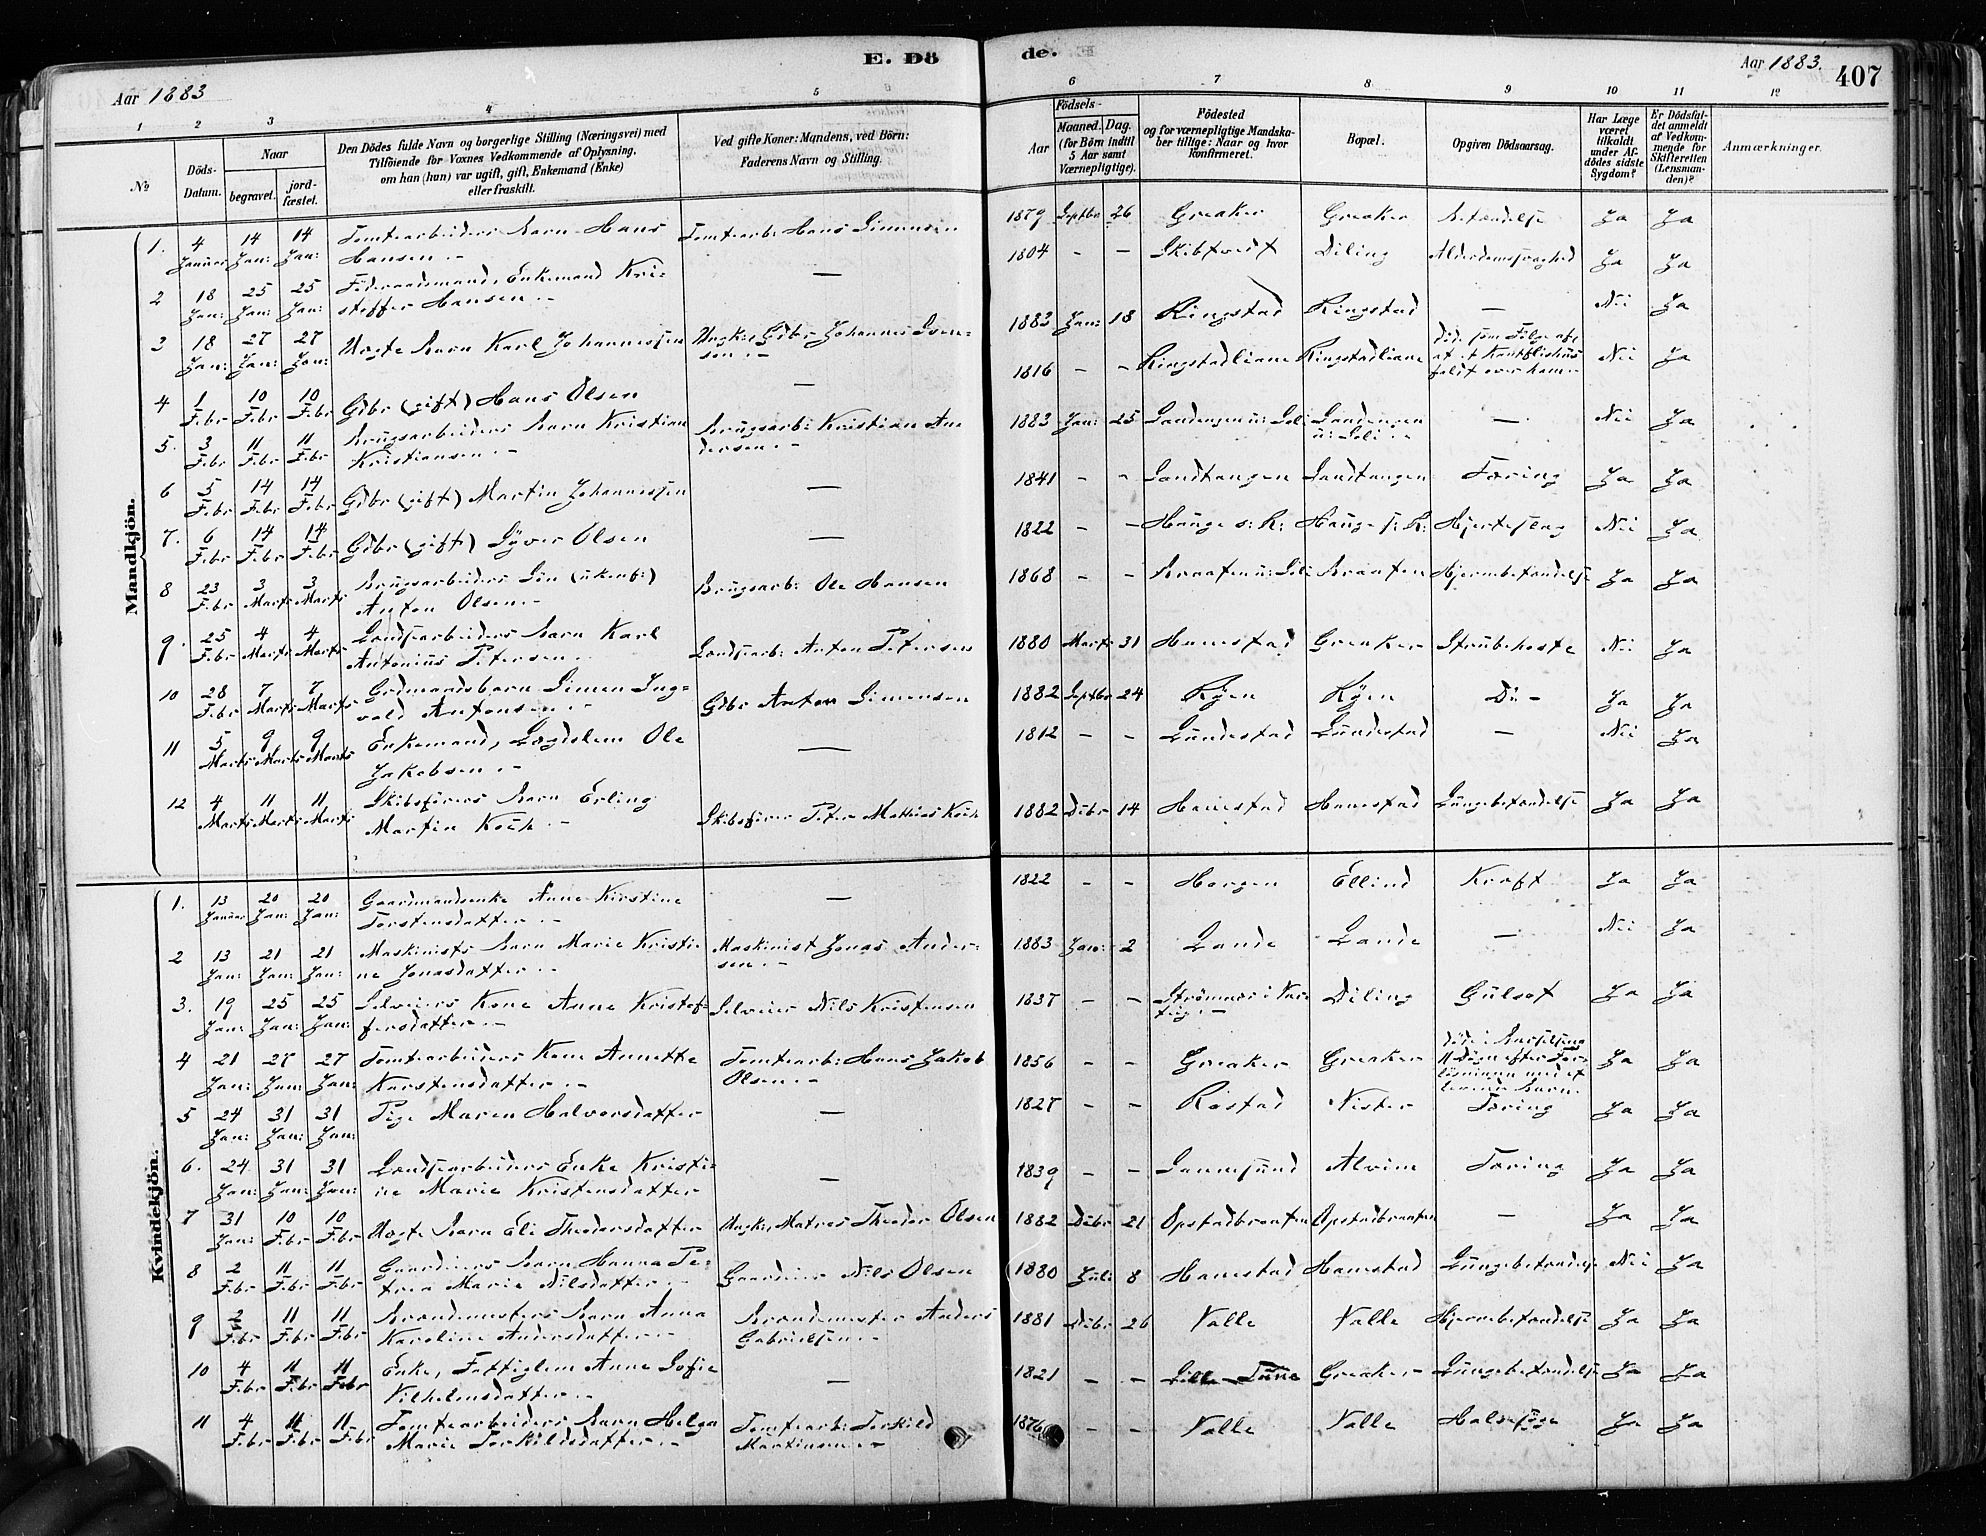 E. Dö
de.
Aar 1883
Aar 1883.
407
1 2 3 4 5 6 7 8 9 10 11 12
№
Döds-Datum.
Naar
begravet.
jord-fæstet.
Den Dödes fulde Navn og borgerlige Stilling (Næringsvei) med
Tilföiende for Voxnes Vedkommende af Oplysning,
om han (hun) var ugift, gift, Enkemand (Enke)
eller fraskilt.
Ved gifte Koner: Mandens, ved Börn:
Faderens Navn og Stilling.
Födsels-
Aar
Maaned. Dag.
(for Börn indtil
5 Aar samt
Værnepligtige).
Födested
og for værnepligtige Mandska-
ber tillige: Naar og hvor
konfirmeret.
Bopæl.
Opgiven Dödsaarsag.
Har Læge
været
tilkaldt
under Af-
dödes sidste
Sygdom?
Er Dödsfal-
det anmeldt
af Vedkom-
mende for
Skifteretten
(Lensman-
den)?
Anmærkninger.
Mandkjön.
1. 4 Januar 14 Jan: 14 Jan: Tomtearbeiders Barn Hans Hansen.- Tomtearb: Hans Simensen 1879 Septbr 26 Greaker Greaker Betændelse Ja Ja
2 18 Jan: 25 Jan: 25 Jan: Föderaadsmand, Enkemand Kristoffer Hansen.- — 1804 - - Skibtvedt Diling Alderdomssvaghed Ja Ja
3 18 Jan: 27 Jan: 27 Jan: Uægte Barn Karl Johannessen Ungk:, Gdbr Johannes Svensen.- 1883 Jan: 18 Ringstad Ringstad — Nei Ja
4 1 Febr 10 Febr 10 Febr Gdbr (gift) Hans Olsen — 1816 - - Ringstadliane Ringstadliane Död som Fölge af, at et faldt over ham.- Nei Ja
5. 3 Febr 11 Febr 11 Febr Brugsarbeiders Barn Kristian Kristiansen.- Brugsarb: Kristian Andersen.- 1883 Jan: 25 Sandengen u: Soli Sandengen u: Soli.- — Nei Ja
6 5 Febr 14 Febr 14 Febr Gdbr (gift) Martin Johannessen — 1841 - - Sandtangen Sandtangen Tæring Ja Ja
7. 6 Febr 14 Febr 14 Febr Gdbr (gift) Syver Olsen — 1822 - - Hauge s: R: Hauge s: R: Hjerteslag Nei Ja
8 23 Febr 3 Marts 3 Marts Brugsarbeiders Sön (ukonf:) Anton Olsen.- Brugsarb: Ole Hansen 1868 - - Braaten u: Soli Braaten Hjernebetændelse Ja Ja
9. 25 Febr 4 Marts 4 Marts Landsarbeiders Barn Karl Antonius Petersen.- Landsarb: Anton Petersen 1880 Marts 31 Hannestad Greaker Strubehoste Nei Ja
10 28 Febr 7 Marts 7 Marts Grdmandsbarn Simen Ingvald Antonsen.- Gdbr Anton Simensen 1882 Septbr 24 Ryen Ryen Do - Ja Ja
11 5 Marts 9 Marts 9 Marts Enkemand, Lægdslem Ole Jakobsen.- — 1812 - - Lundestad Lundestad — Nei Ja
12 4 Marts 11 Marts 11 Marts Skibsförers Barn Erling Martin Koch.- Skibsförer Peter Mathias Koch 1882 Debr 14 Hannestad Hannestad Lungebetændelse Ja Ja
Kvindekjön.
1. 13 Januar 20 Jan: 20 Jan: Gaardmandsenke Anne Kirstine Torstensdatter.- — 1822 - - Horgen Ellind Kræft Ja Ja
2 13 Jan: 21 Jan: 21 Jan: Maskinists Barn Marie Kristine Jonasdatter.- Maskinist Jonas Andersen.- 1883 Jan: 2 Lande Lande — Nei Ja
3. 19 Jan: 25 Jan: 25 Jan: Selveiers Kone Anne Kristoffersdatter.- Selveier Nils Kristensen 1837 - - Strömnes i Varteig.- Diling Gulsot Ja Ja
4 21 Jan: 27 Jan: 27 Jan: Tomtearbeiders Kone Annette Karstensdatter.- Tomtearb: Hans Jakob Olsen.- 1856 - - Greaker Greaker död i Barselseng 11 Dage efter Forlösningen med et levende Barn. Ja Ja
5 24 Jan: 31 Jan: 31 Jan: Pige Maren Halvorsdatter — 1827 - - Röstad Nister Tæring Ja Ja
6. 24 Jan: 31 Jan: 31 Jan: Landsarbeiders Enke Kristine Marie Kristensdatter — 1839 - - Sannesund Alvim Tæring Ja Ja
7 31 Jan: 10 Febr 10 Febr Uægte Barn Eli Theodorsdatter Ungk:, Matros Theodor Olsen 1882 Debr 21 Opstadbraaten Opstadbraaten — Ja Ja
8 2 Febr 11 Febr 11 Febr Gaardeiers Barn Hanna Petrea Marie Nilsdatter.- Gaardeier Nils Olsen 1880 Juli 8 Hannestad Hannestad Lungebetændelse Nei Ja
9 2 Febr 11 Febr 11 Febr Brandmesters Barn Anna Karoline Andersdatter.- Brandmester Anders Gabrielsen.- 1881 Debr 26 Valle Valle Hjernebetændelse Ja Ja
10 4 Febr 11 Febr 11 Febr Enke, Fattiglem Anne Sofie Vilhelmsdatter.- — 1821 - - Lille-Tune Greaker Lungebetændelse Ja Ja
11 4 Febr 11 Febr 11 Febr Tomtearbeiders Barn Helga Marie Terkildsdatter.- Tomtearb: Terkild Martinsen.- 1876 - - Valle Valle Halssyge Ja Ja